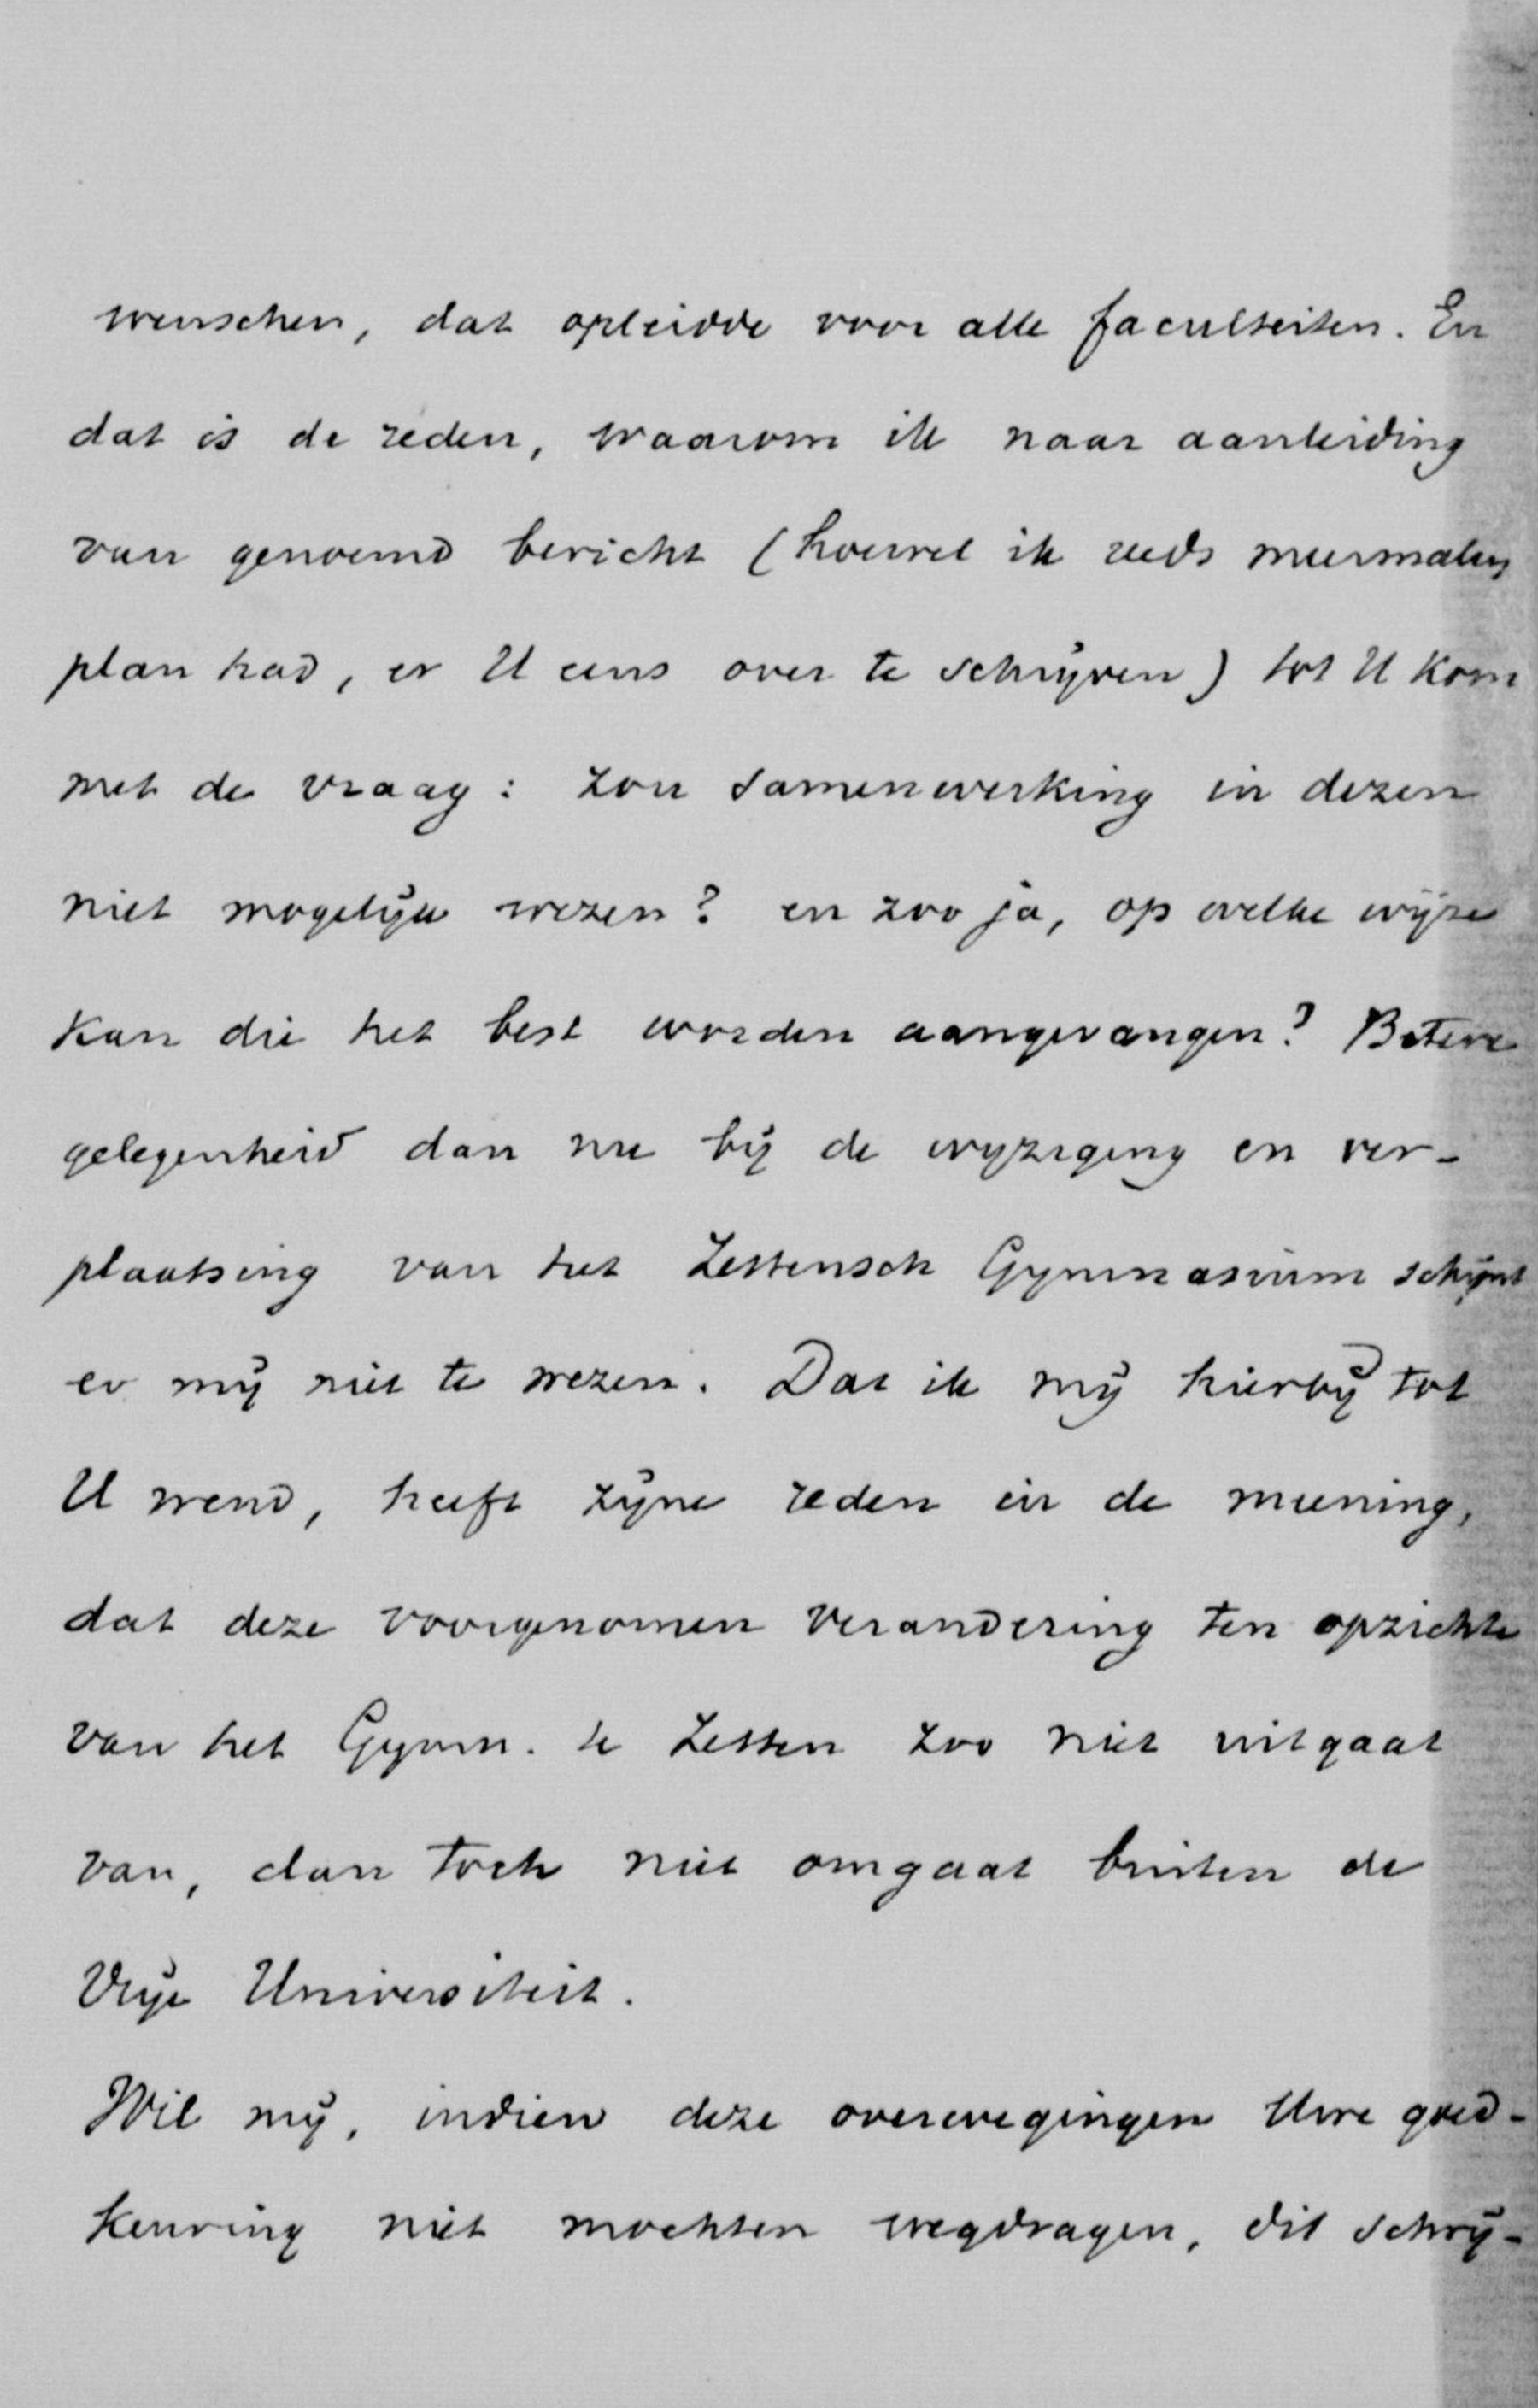 wenschen, dat opleidde voor alle faculteiten. En
dat is de reden, waarom ik naar aanleiding
van genoemd bericht (hoewel ik reeds meermalen
plan had, er U eens over te schrijven) tot U kom
met de vraag: zou samenwerking in dezen
niet mogelijk wezen? en zoo ja, op welke wijze
kan die het best worden aangevangen? Betere
gelegenheid dan nu bij de wijziging en ver-
plaatsing van het Zettensch Gymnasium schijnt
er mij niet te wezen. Dat ik mij hierbij tot
U wend, heeft zijne reden in de meening,
dat deze voorgenomen verandering ten opzichte
van het Gymn. te Zetten zoo niet uitgaat
van, dan toch niet omgaat buiten de
Vrije Universiteit.
Wil mij, indien deze overwegingen Uwe goed-
keuring niet mochten wegdragen, dit schrij-